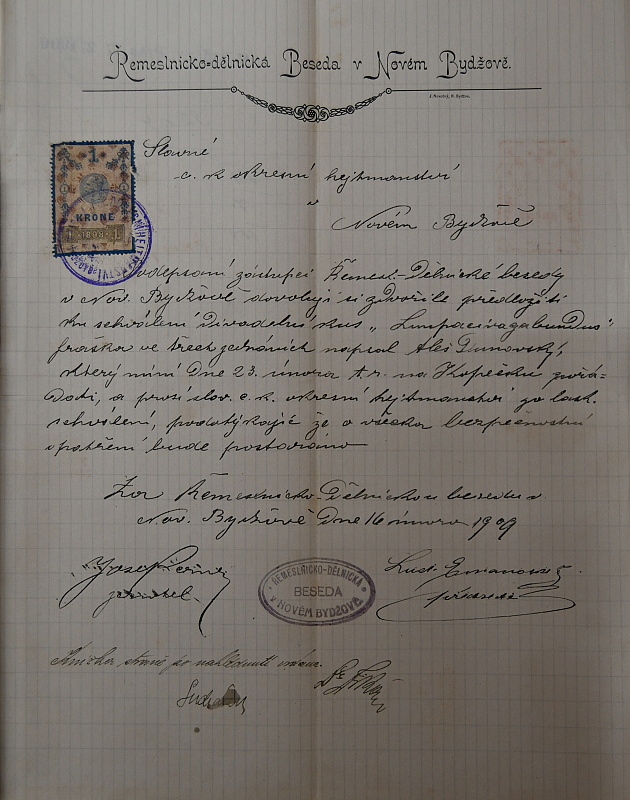 Řemeslnicko-dělnická Beseda v Novém Bydžově.
Slavné
c. k. okresní hejtmanství
v
Novém Bydžově
1
KRONE
1 1898 1
podepsaní zástupci Řemesl.-Dělnické besedy
v Nov. Bydžově dovolují si zdvořile předložiti
ku schválení Divadelní kus „Lumpacivagabundus"
fraška ve třech jednáních napsal
který míní Dne 23. února t. r. na Kopečku pořá-
dati, a prosí slov. c. k. okresní hejtmanství za lask.
schválení, podotýkajíc že o všecka bezpečnostní
opatření bude postaráno
Za Řemeslnicko-Dělnickou besedu v
Nov. Bydžově Dne 16 února 1909
Josef
jednatel.
ŘEMESLŇICKO-DĚLNICKÁ
BESEDA
V NOVÉM BYDŽOVĚ
Lud.
předseda